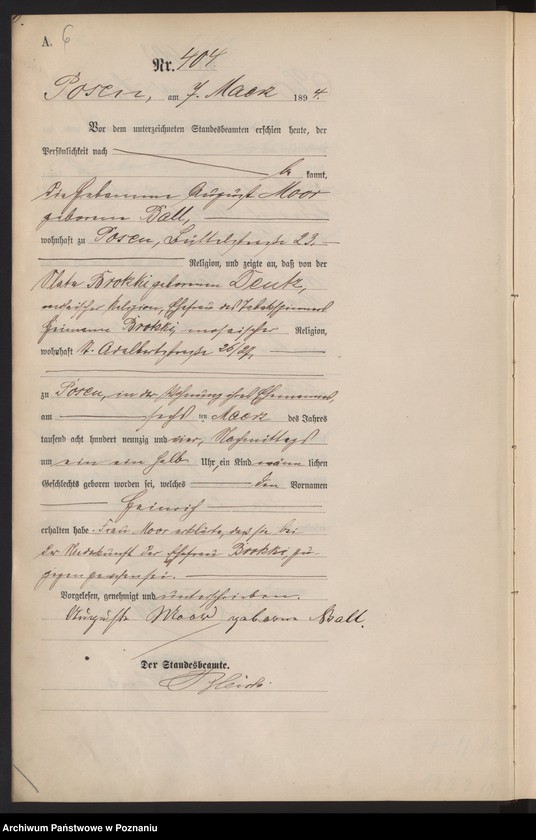 A. 6
Nr. 404.
Posen, am 7. Maerz 1894.
Vor dem unterzeichneten Standesbeamten erschien heute, der
Persönlichkeit nach
be kannt,
die Hebamme August Moor
geborene Ball,
wohnhaft zu Posen, Büttelstraße 23.
Religion, und zeigte an, daß von der
Flata Brokki geborenen Deutz,
mosaischer Religion, Ehefrau des
Heimann Brokki, mosaischer Religion,
wohnhaft St. Adalbertstraße 26/27,
zu Posen, in der Wohnung ihres Ehemannes,
am sechsten Maerz des Jahres
tausend acht hundert neunzig und vier, Nachmittags
um ein ein halb Uhr, ein Kind männ lichen
Geschlechts geboren worden sei, welches den Vornamen
Heinrich
erhalten habe. Frau Moor erklärte, daß sie bei
der Niederkunft der Ehefrau Brokki zu
gegen gewesen sei.
Vorgelesen, genehmigt und unterschrieben.
Auguste Moor geborne Ball.
Der Standesbeamte.
Archiwum Państwowe w Poznaniu